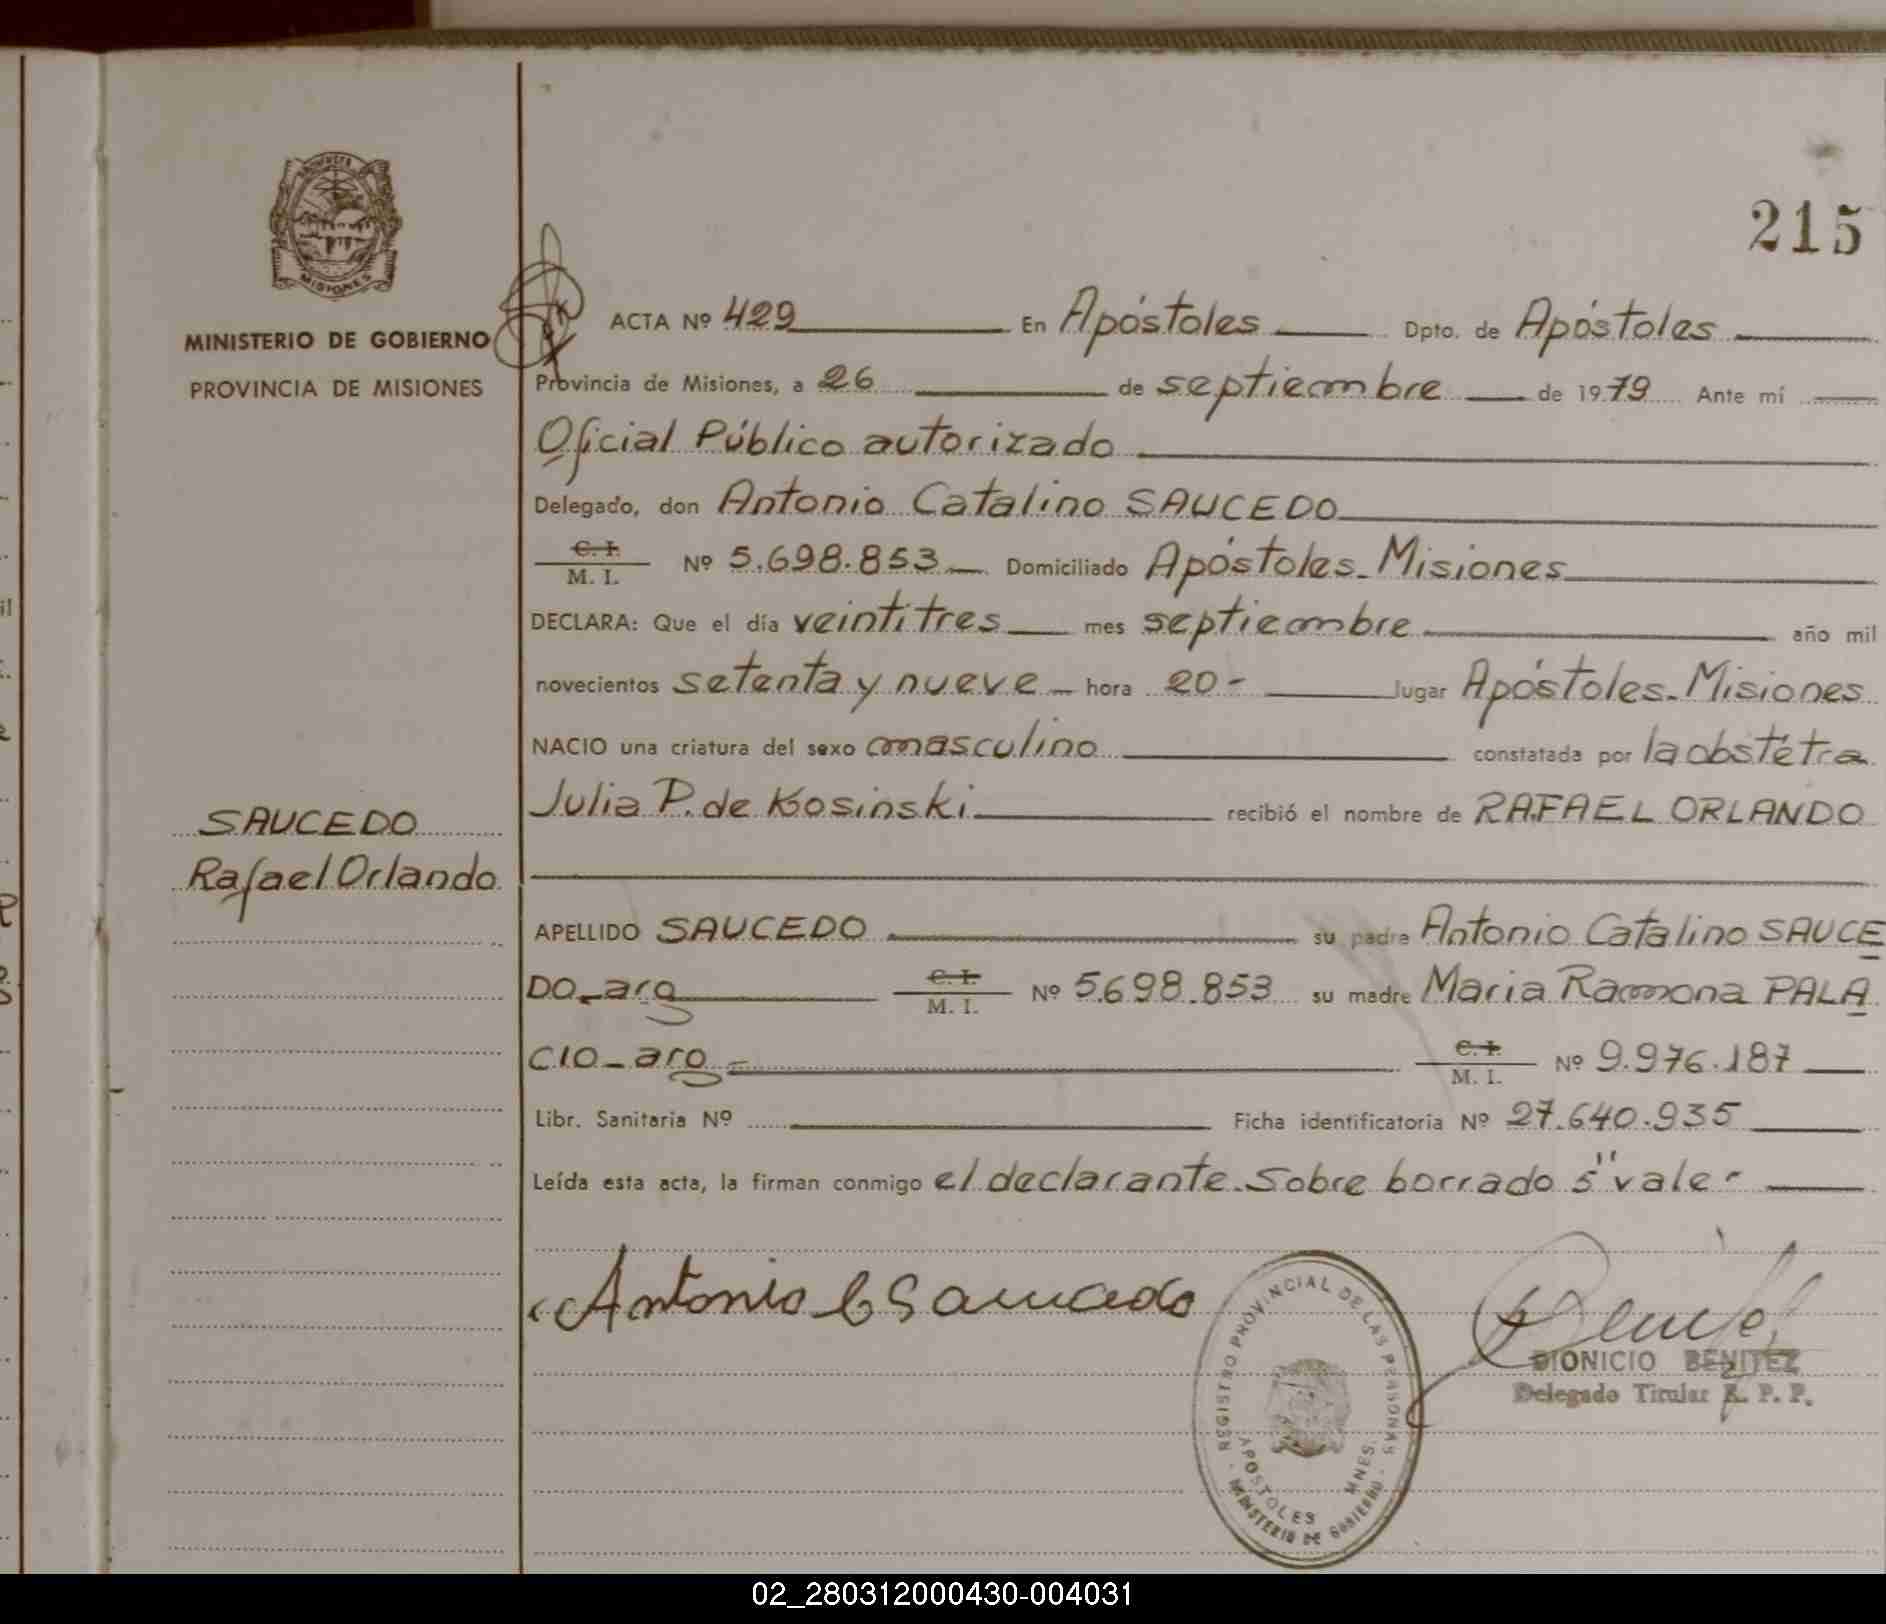 215
MISIONES
MINISTERIO DE GOBIERNO
PROVINCIA DE MISIONES
ACTA Nº 429 En Apóstoles Dpto. de Apóstoles
Provincia de Misiones, a 26 de septiembre de 1979 Ante mí
Oficial Público autorizado
Delegado, don Antonio Catalino SAUCEDO
C. I.
M. I. Nº 5.698.853 Domiciliado Apóstoles-Misiones
DECLARA: Que el día veintitres mes septiembre año mil
novecientos setenta y nueve hora 20- lugar Apóstoles-Misiones
NACIO una criatura del sexo masculino constatada por la obstétra
Julia P. de Kosinski recibió el nombre de RAFAEL ORLANDO
SAUCEDO
Rafael Orlando
APELLIDO SAUCEDO su padre Antonio Catalino SAUCE
DO-arg C. I.
M. I. Nº 5.698.853 su madre Maria Ramona PALA
CIO-arg- C. I.
M. I. Nº 9.976.187
Libr. Sanitaria Nº Ficha identificatoria Nº 27.640.935
Leída esta acta, la firman conmigo el declarante. Sobre borrado 5" vale-
Antonio C Saucedo
REGISTRO PROVINCIAL DE LAS PERSONAS
APOSTOLES MNES.
MINISTERIO DE GOBIERNO
DIONICIO BENITEZ
Delegado Titular R. P. P.
02_280312000430-004031